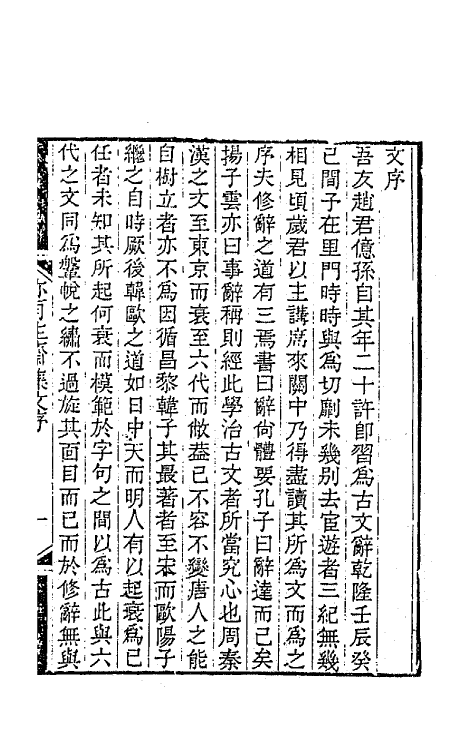 文序
吾友趙君億孫自其年二十許卽習爲古文辭乾隆壬辰癸
已間子在里門時時與爲切劘未幾别去宦遊者三紀無幾
相見頃歲君以主講席來關中乃得盡讀其所爲文而爲之
序夫修辭之道有三焉書曰辭尙體要孔子曰辭達而已矣
揚子雲亦曰事辭稱則經此學治古文者所當究心也周秦
漢之文至東京而衰至六代而敝葢已不容不變唐人之能
自樹立者亦不爲因循昌黎韓子其最著者至宋而歐陽子
繼之自時厥後韓歐之道如日中天而明人有以起衰爲已
任者未知其所起何衰而模範於字句之間以爲古此與六
代之文同爲鞶帨之繡不過旋其面目而已而於修辭無與
亦有生齋集文序
一